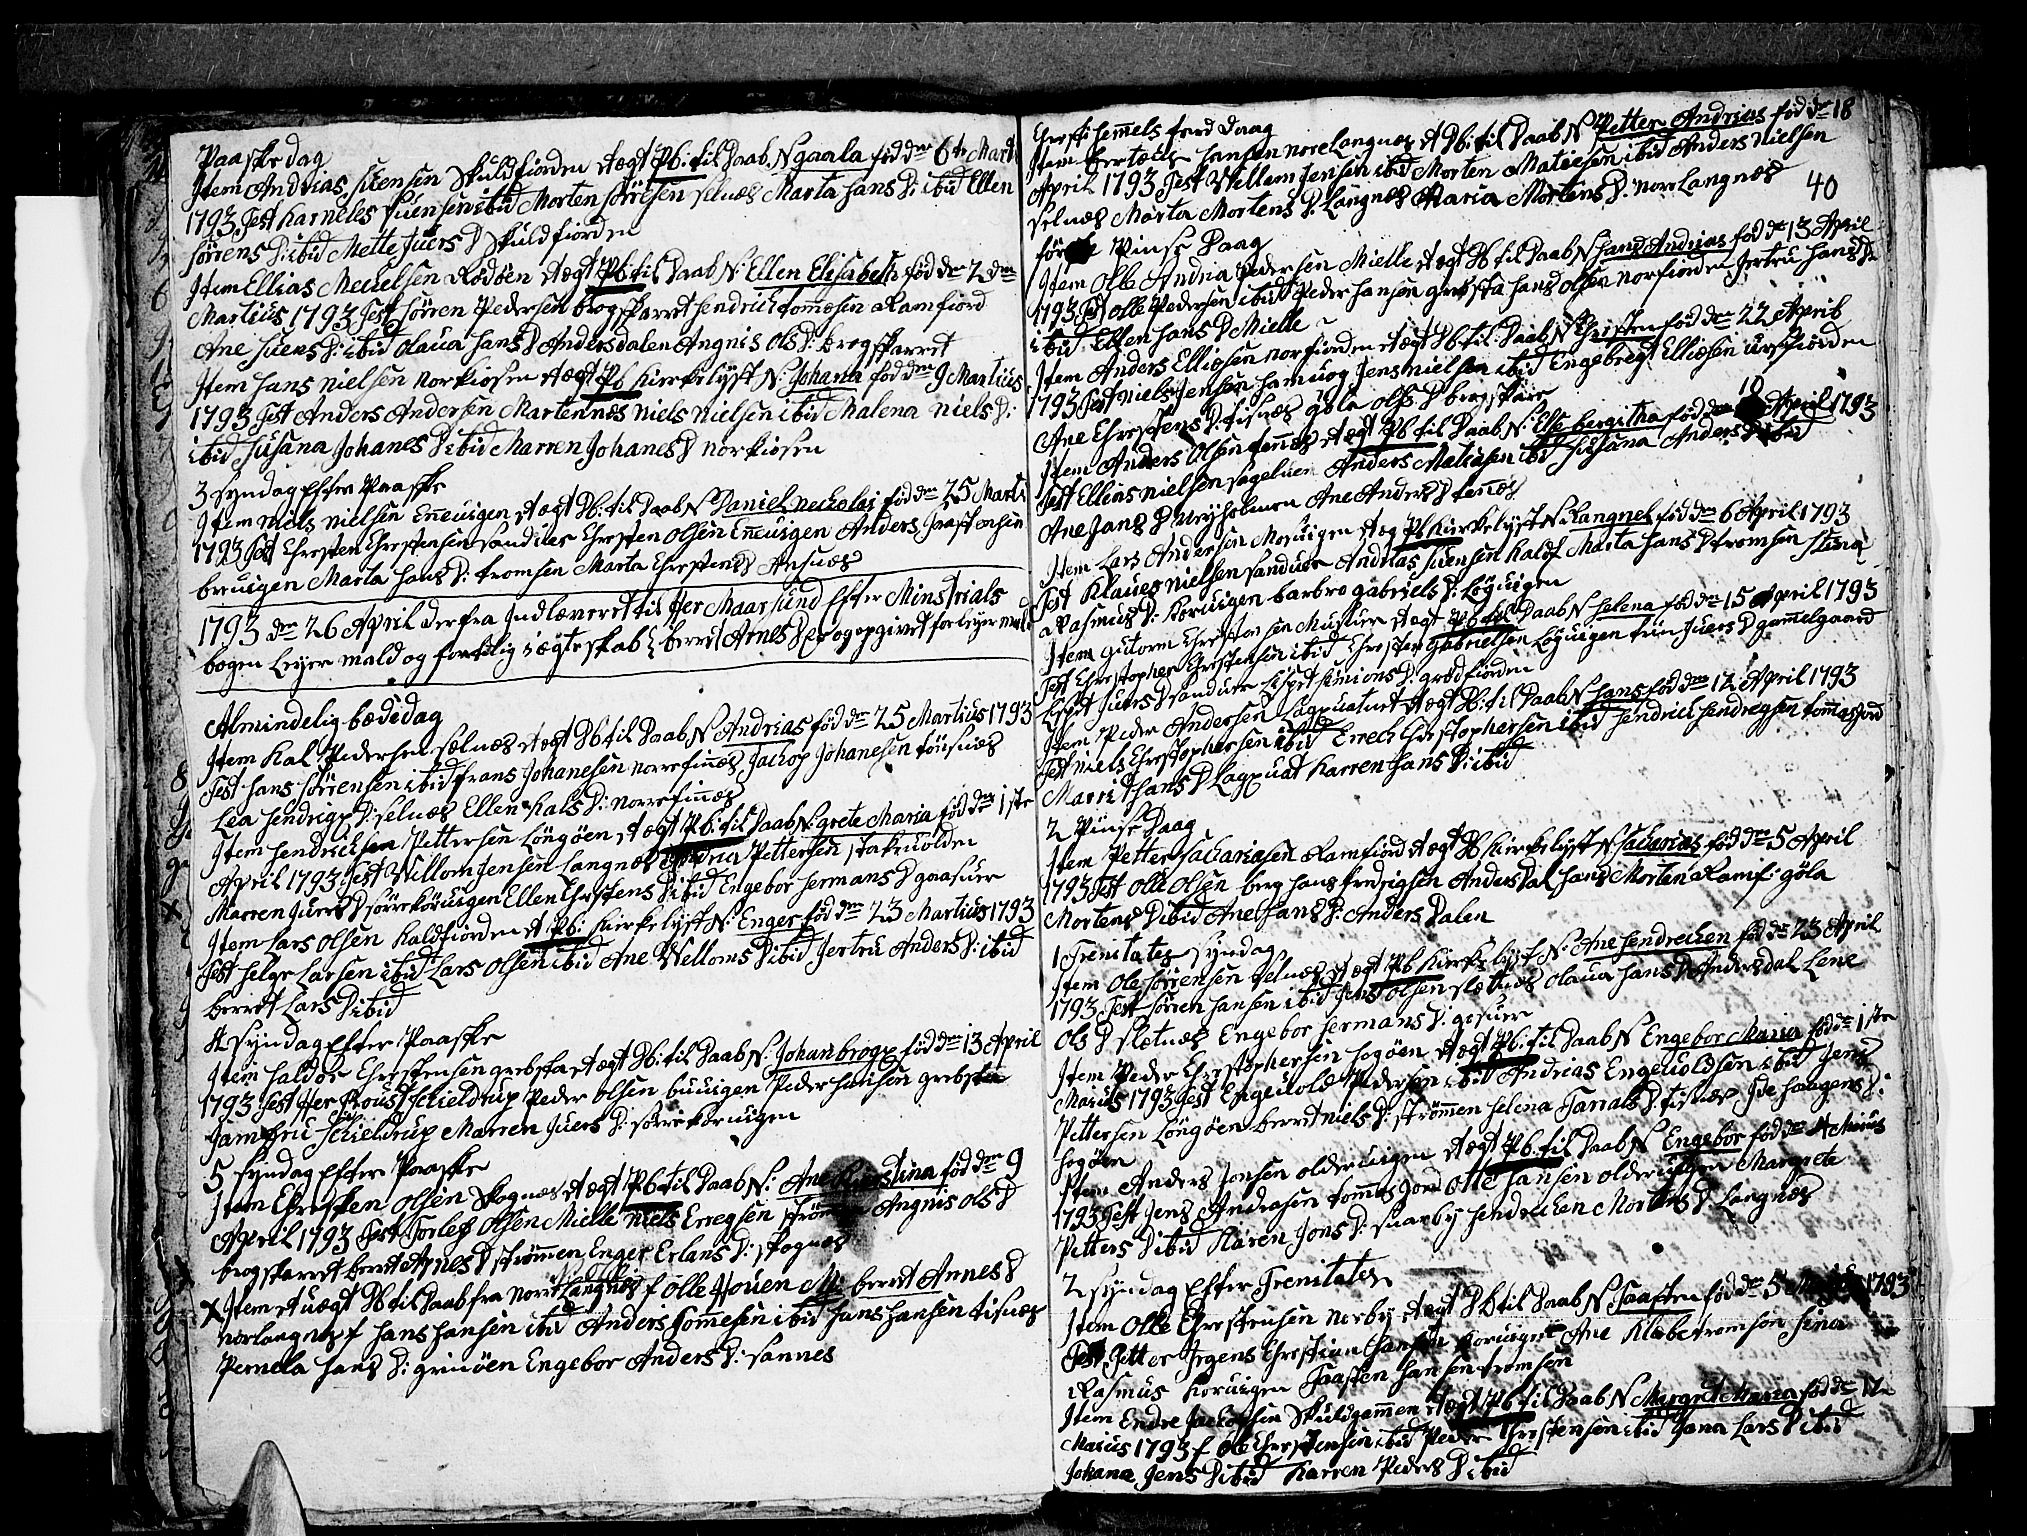 Paaske dag
Item Andrias Suensen Skuldfiorden Et ægt Pb: til Daab N gaala fød dn 6te Marti
1793 Test Karneles Suensen ibid Morten Sörresen Selnæs Marta Hans D: ibid Ellen
Sörrens D: ibid Mette Juers D Skuldfiorden
Item Ellias Meckelsen Rödöen et ægt Pb: til Daab N: Ellen Elisabeth fød dn 2 dn
Martius 1793 Test Sörren Pedersen brogskarret Hendrick Tommesen Ramfiord
Ane Suens D: ibid Olaua Hans D Andersdalen Angnis Ols D: brogskarret
Item Hans Nielsen Norkiosen et ægt Pb Kirkelyst N: Johana fød dn 9 Martius
1793 Test Anders Andersen Martennæs Niels Nielsen ibid Malena Niels D:
ibid Susana Johanes D ibid Marren Johanes D Norkiosen
3 Syndag Efter Paaske
Item Niels Nielsen Enneuigen et ægt Pb: til Daab N Daniel Neckolai fød dn 25 Marti
1793 Test Chresten Chrestensen Sanduer Chresten Olsen Enneuigen Anders
breuigen Marta Hans D: Tromsen Marta Chrestens D Ansnæs
1793 dn 26 April derfra Indlæueret til Her Maarsund Efter Ministrials
bogen Leyermaal og fortelig i ægteskab berret Arnes D er og opgivet for leyermaal
Almindelig bædedag
Item Kal Pedersen Selnæs et ægt Pb til Daab N Andrias fød dn 25 Martius 1793
Test Hans Sörrensen ibid Frans Johanesen Norrefinnæs Jackop Johanesen Tönsnæs
Lea Hendrigs D: Selnæs Ellen Kals D: Norrefinnæs
Item Hendricksen Pettersen Löngöen et ægt Pb: til Daab N: grete Maria fød dn 1ste
April 1793 Test Willom Jensen Langnæs Pettersen Stakuolden
Marren Juers D Sörrekoruigen Ellen Chrestens D ibid Engebor Hermans D gaasuer
Item Lars Olsen Kaldfiorden et Pb: Kirkelyst N: Enger fød dn 23 Martius 1793
Test Helge Larsen ibid Lars Olsen ibid Ane Welloms D ibid Jertru Anders D: ibid
berret Lars D ibid
4 Syndag Efter Paaske
Item Haldor Chrestensen grebsta et ægt Pb: til Daab N: Johan brogs fød dn 13 April
1793 Test Her Roust Schieldrup Peder Olsen buuigen Peder Hansen grebsta
Jamfru Schieldrup Marren Juers D: Sörrekoruigen
5 Syndag Efter Paaske
Item Chresten Olsen Skognæs et ægt Pb: til Daab N: Ane fød dn 9
April 1793 Test Torleg Olsen Mielle Niels Erregsen Angnis Ols D
brogskarret berret Arnes D Strömmen Enger Erlans D: Skognæs
X Item et uægt Pb til Daab fra Norr Langnæs f Olle Houen M: berret Annes D
Norlangnes f Hans Hansen ibid Anders Tommesen ibid Hans Hansen Tisnæs
Pernela Hans D: grinöen Engebor Anders D: Sannes
Chresti Himmels fard Daag
Item Hansen Nore Langnæs et Pb: til Daab N Petter Andrias fød dn 18
April 1793 Test Willem Jensen ibid Morten Matiesen ibid Anders Nielsen
Selnæs Marta Mortens D: Langnæs Maria Mortens D: Nore Langnæs
40
förste Pinse Daag
Item Olle Andria Pedersen Mielle et ægt Pb til Daab N Hans Andrias fød dn 13 April
1793 Test Olle Pedersen ibid Peder Hansen grebsta Hans Olsen Norfiorden Jertru Hans D:
ibid Ellen Hans D Mielle
Item Anders Elliasen Norfiorden et ægt Pb: til: Daab N Chresten fød dn 22 April
1793 Test Niels Jensen Hamuog Jens Nielsen ibid Engebregt Elliasen ursfiorden
Ane Chrestens D: Tisnæs göla Ols D brogskare
Item Anders Olsen Fennæs et ægt Pb til Daab N: Else bergitha fød dn 10 April 1793
Test Ellias Nielsen Sageluen Anders Matiesen ibid Susana Anders D ibid
Ane Jans D Ane Anders D Fennæs
Item Lars Andersen Moruigen et æg Pb Kirkelyst N: Rangnel fød dn 6 April 1793
Test Klaues Nielsen Sanduer Andrias Suensen Kaldf Marta Hans D Tromsen Stina
Rasmus D: Koruigen barbro gabriels D: Löguigen
Item gutorm Chrestensen Muskuer et ægt Pb til Daab N Helena fød dn 15 April 1793
Test Chrestopher Chrestensen ibid Chresten Gabrielsen Löguigen Juers D gammelgaard
Juers D Sanduer Simions D: grödfiorden
Item Peder Andersen Lagpuatnet et ægt Pb: til Daab N Hans fød dn 12 April 1793
Test Niels Chrestophersen ibid Erreck Chrestophersen ibid Hendrick Hendregsen Tommasjord
Marret Hans D Lagpuat Karren Hans D: ibid
2 Pinse Daag
Item Petter Sackariasen Ramfiord et ægt Pb Kirkelyst N Sackarias fød dn 5 April
1793 Test Olle Olsen berg Hans Fredrigsen Andersdal Hans Morten Ramf: göla
Mortens D ibid Ane Hans D: Andersdalen
1 Trenitates Syndag
Item Ole Sörrensen Selnæs et ægt Pb Kirkelyst N: Ane Hendrecken fød dn 23 April
1793 Test Sörren Hansen ibid Jens Olsen Sletnæs Olaua Hans D Andersdal Lene
Ols D Sletnæs Engebor Hermans D: gosuer
Item Peder Chrestophersen Hogöen et ægt Pb: til Daab N Engebor Maria fød dn 1ste
Maius 1793 Test Engeuold Pedersen ibid Andreas Engeuoldsen ibid Jens
Pettersen Löngöen berret Niels D: Strömmen Helena Tarrals D: Tisnæs Ide Haagens D:
Hogöen
Item Anders Jonsen olderuigen et ægt Pb: til Daab N Engebor fød dn 4 Maius
1793 Test Jens Andreasen Tommasjord Otte Hansen olderuigen Margrete
Petters D ibid Karen Jons D: Suarby Hendrecken Mortens D: Langnæs
2 Syndag Efter Trenitates
Item Olle Chrestensen Norby et ægt Pb til Daab N Taasten fød dn 5 1793
Test Petter Irgens Chrestian Hansen Koruigen Ane Klæbe Tromsen Sina
Rasmus Koruigen Taasten Hansen Tromsen
Item Endre Jackopsen Skuldgammen et ægt Pb til Daab N Margret Maria fød dn
Maius 1793 f Ole Chrestensen ibid Peder Chrestensen ibid Jana Lars D ibid
Johana Jens D ibid Karren Peders D ibid